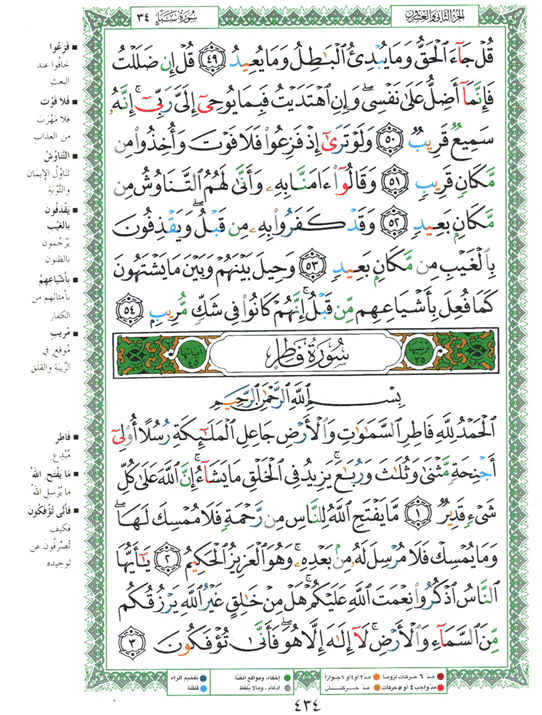 الجزء الثاني والعشرون
سورة سبإ ٣٤
قُلْ جَآءَ الْحَقُّ وَمَا يُبْدِئُ الْبَاطِلُ وَمَا يُعِيدُ ٤٩ قُلْ إِن ضَلَلْتُ
فَإِنَّمَآ أَضِلُّ عَلَىٰ نَفْسِي ۖ وَإِنِ اهْتَدَيْتُ فَبِمَا يُوحِىٓ إِلَىَّ رَبِّىٓ ۚ إِنَّهُۥ
سَمِيعٌ قَرِيبٌ ٥٠ وَلَوْ تَرَىٰٓ إِذْ فَزِعُوا فَلَا فَوْتَ وَأُخِذُوا مِن
مَّكَانٍ قَرِيبٍ ٥١ وَقَالُوٓا ءَامَنَّا بِهِۦ وَأَنَّىٰ لَهُمُ التَّنَاوُشُ مِن
مَّكَانٍ بَعِيدٍ ٥٢ وَقَدْ كَفَرُوا بِهِۦ مِن قَبْلُ ۖ وَيَقْذِفُونَ
بِالْغَيْبِ مِن مَّكَانٍ بَعِيدٍ ٥٣ وَحِيلَ بَيْنَهُمْ وَبَيْنَ مَا يَشْتَهُونَ
كَمَا فُعِلَ بِأَشْيَاعِهِم مِّن قَبْلُ ۚ إِنَّهُمْ كَانُوا فِى شَكٍّ مُّرِيبٍ ٥٤
سُورَةُ فَاطِرٍ
بِسْمِ اللَّهِ الرَّحْمَٰنِ الرَّحِيمِ
الْحَمْدُ لِلَّهِ فَاطِرِ السَّمَٰوَٰتِ وَالْأَرْضِ جَاعِلِ الْمَلَٰٓئِكَةِ رُسُلًا أُو۟لِىٓ
أَجْنِحَةٍ مَّثْنَىٰ وَثُلَٰثَ وَرُبَٰعَ ۚ يَزِيدُ فِى الْخَلْقِ مَا يَشَآءُ ۚ إِنَّ اللَّهَ عَلَىٰ كُلِّ
شَىْءٍ قَدِيرٌ ١ مَّا يَفْتَحِ اللَّهُ لِلنَّاسِ مِن رَّحْمَةٍ فَلَا مُمْسِكَ لَهَا ۖ
وَمَا يُمْسِكْ فَلَا مُرْسِلَ لَهُۥ مِنۢ بَعْدِهِۦ ۚ وَهُوَ الْعَزِيزُ الْحَكِيمُ ٢ يَٰٓأَيُّهَا
النَّاسُ اذْكُرُوا نِعْمَتَ اللَّهِ عَلَيْكُمْ ۚ هَلْ مِنْ خَٰلِقٍ غَيْرُ اللَّهِ يَرْزُقُكُم
مِّنَ السَّمَآءِ وَالْأَرْضِ ۚ لَآ إِلَٰهَ إِلَّا هُوَ ۖ فَأَنَّىٰ تُؤْفَكُونَ ٣
فَزِعُوا
خافُوا عند
البعث
فَلا فَوْت
فلا مَهْرَبَ
من العذاب
التَّنَاوُشُ
تناوُلُ الإيمان
والتَّوْبَة
يَقْذِفُونَ
بالغَيْب
يَرْجُمون
بالظنون
بأشْيَاعِهِمْ
بأمثالِهم من
الكفار
مُريب
مُوقِع في
الرِّيبَة والقَلَق
فَاطِر
مُبْدِع
مَا يَفْتَحِ اللهُ
ما يُرْسِلِ اللهُ
فَأَنَّى تُؤْفَكُونَ
فكيف
تُصْرَفُون عن
توحيده
مدّ ٦ حركات لزوماً
مدّ ٢ أو ٤ أو ٦ جوازاً
مدّ واجب ٤ أو ٥ حركات
مدّ حركتان
إخفاء، ومواقع الغُنَّة
ادغام، ومالا يُلفَظ
تفخيم الراء
قلقلة
٤٣٤